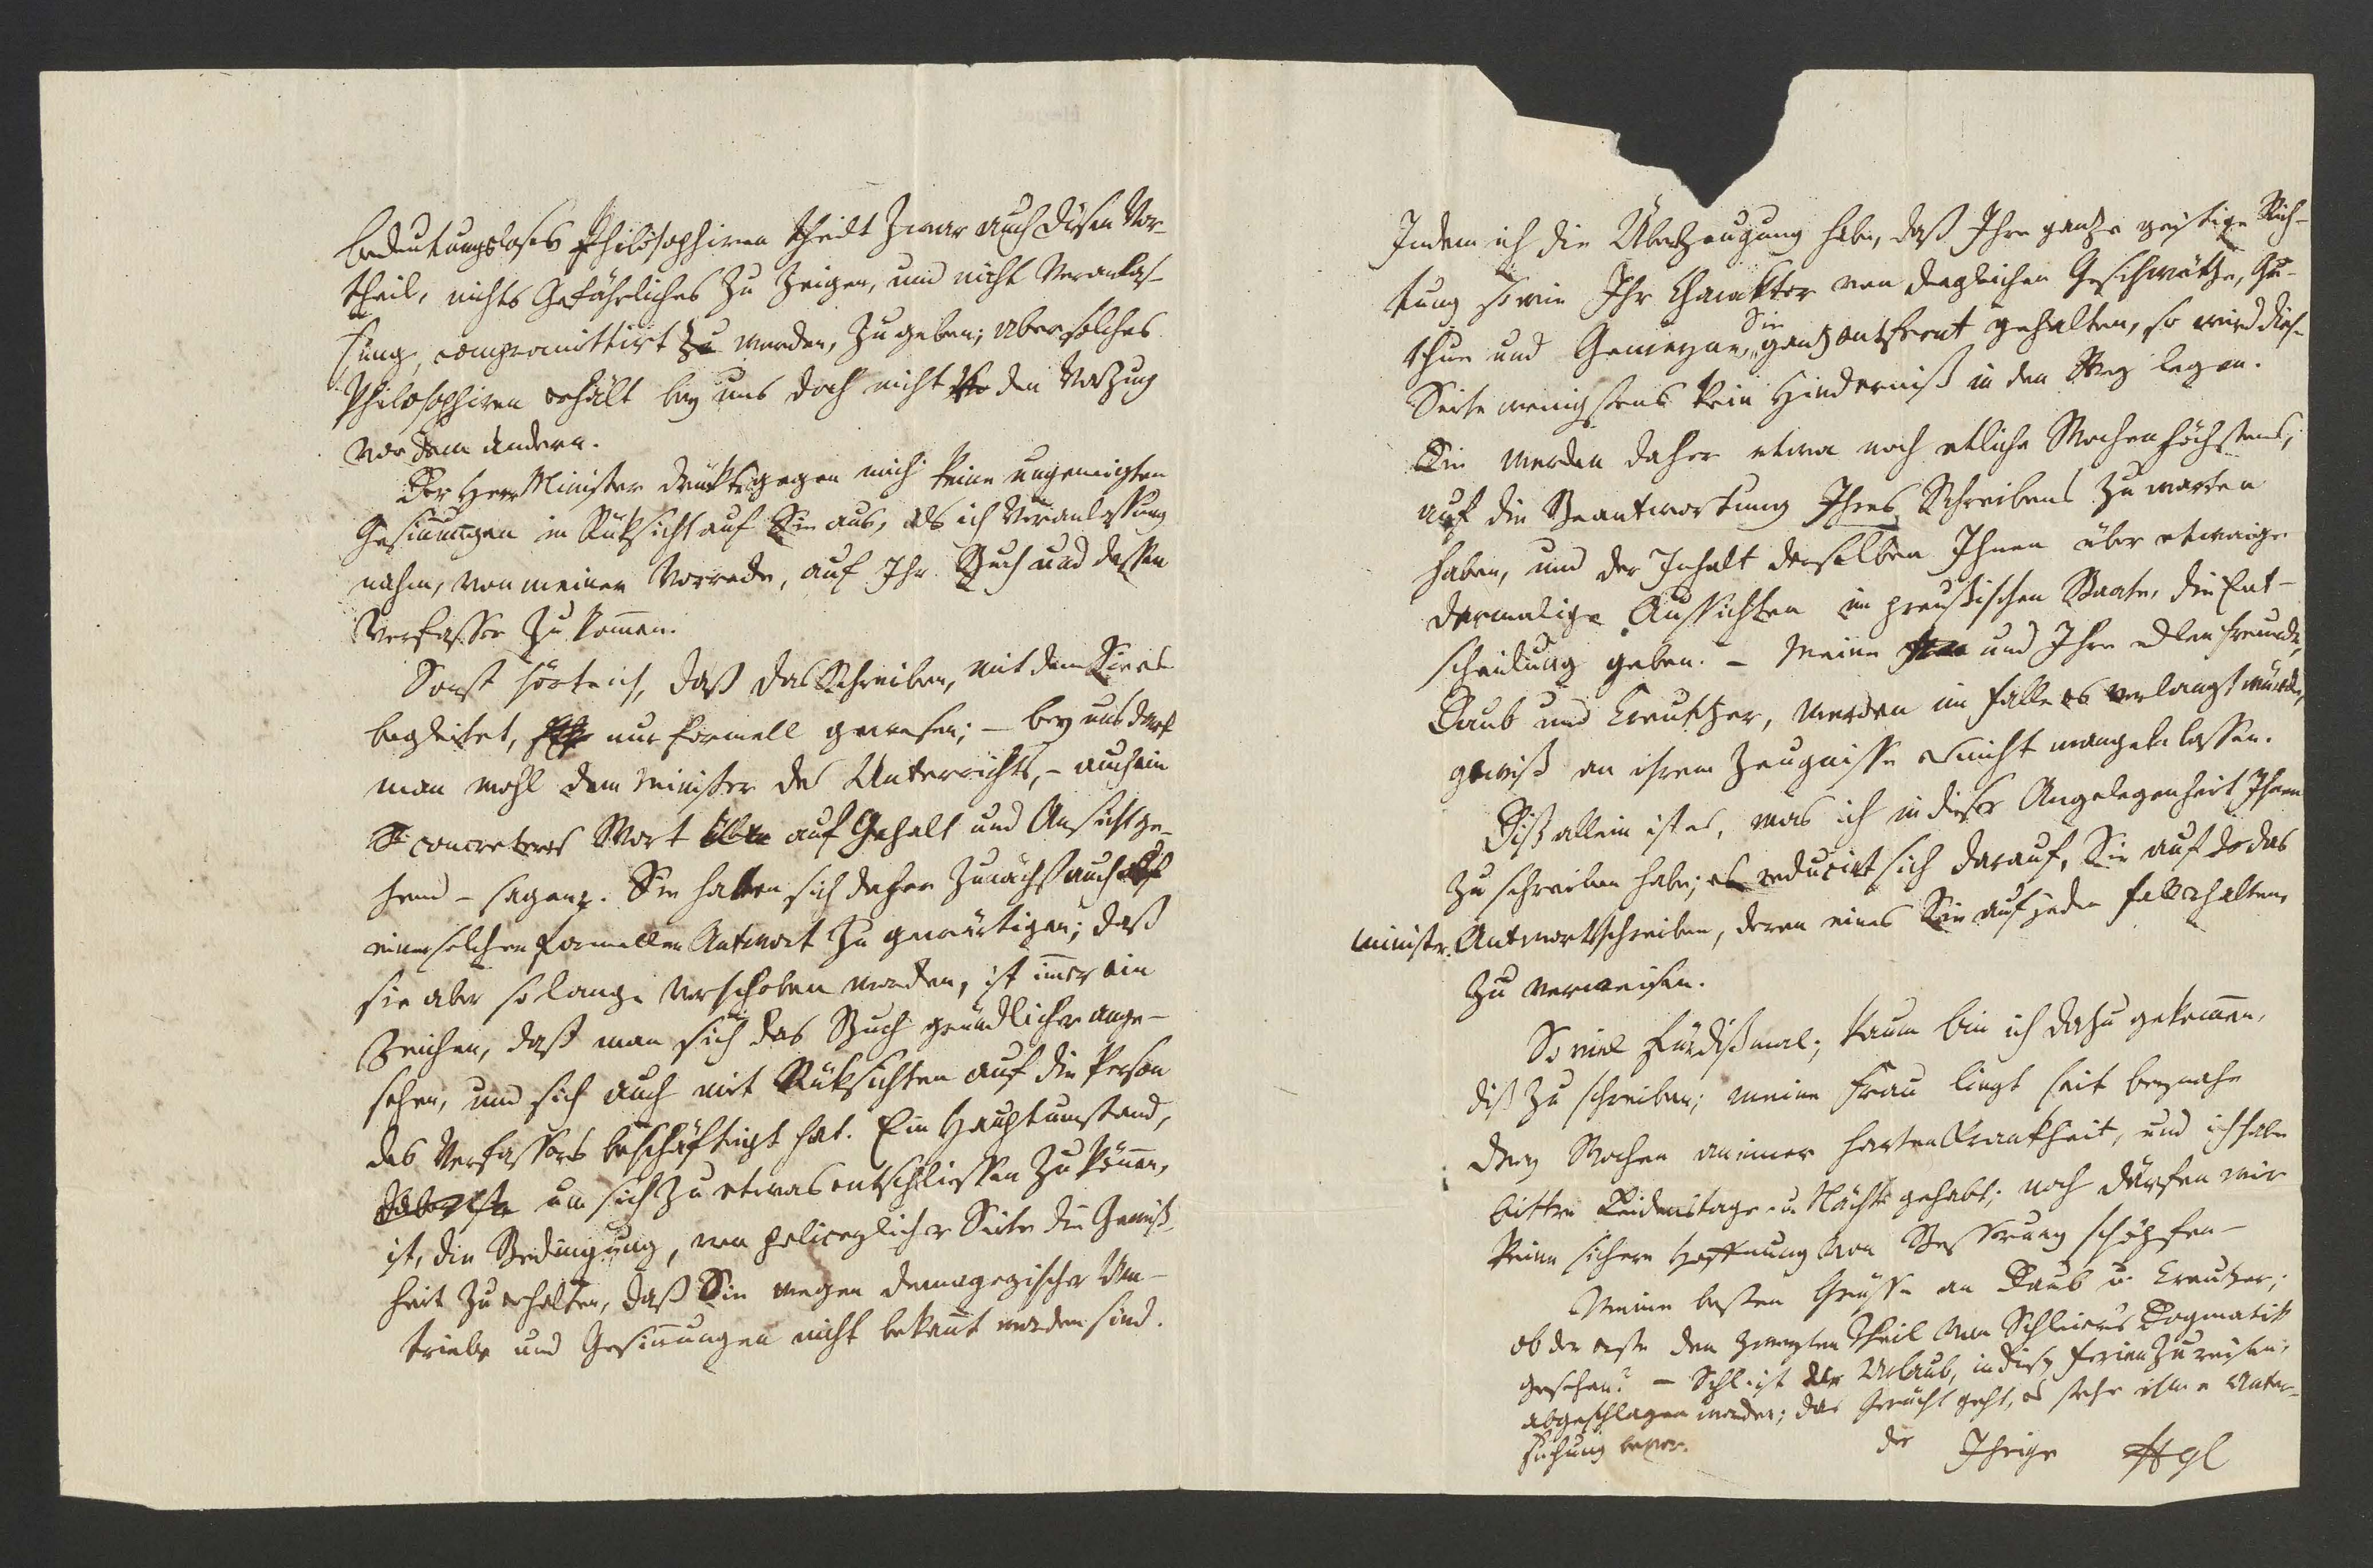 bedeutungsloses Philosophiren theilt zwar auch disen Vor-
theil, nichts Gefährliches zu zeigen, und nicht Veranlas-
sung, compromittirt zu werden, zu geben; aber solches
Philosophiren erhält bey uns doch nicht den Vorzug
vor dem andern.
Der Herr Minister drükte gegen mich keine ungeneigten
Gesinnungen in Rüksicht auf Sie aus, als ich Veranlassung
nahm, von meiner Vorrede, auf Ihr Buch und dessen
Verfasser zu kom̅en.
Sonst hörte ich, daß das Schreiben, mit dem Sie es
begleitet, nur formell gewesen; – bey uns darf
man wohl dem Minister des Unterrichts, – auch ein
concreteres Wort auf Gehalt und Ansicht ge-
hend – sagen. Sie hatten sich daher zunächst auch
einer solchen formellen Antwort zu gewärtigen; daß
sie aber so lange verschoben worden, ist im̅er ein
Zeichen, daß man sich das Buch gründlicher ange-
sehen, und sich auch mit Rüksichten auf die Person
des Verfassers beschäftigt hat. Ein Hauptumstand,
um sich zu etwas entschliessen zu kön̅en,
ist, die Bedingung, von policeylicher Seite die Gewiß-
heit zu erhalten, daß Sie wegen demagogischer Um-
triebe und Gesin̅ungen nicht bekan̅t worden sind.
Indem ich die Überzeugung habe, daß Ihre ganze geistige Rich-
tung sowie Ihr Charakter von dergleichen Geschwätze, Ge-
thue und Gemeyne, Sie ganz entfernt gehalten, so wird dies-
Seite wenigstens kein Hinderniß in den Weg legen.
Sie werden daher etwa noch etliche Wochen höchstens,
auf die Beantwortung Ihres Schreibens zu warten
haben, und der Inhalt derselben Ihnen über etwaige
dermalige Aussichten im preussischen Staate, die Ent-
scheidung geben. – Meine und Ihre edlen Freunde,
Daub und Creutzer, werden im Falle es verlangt würde,
gewiß an ihrem Zeugnisse nicht mangeln lassen.
Diß allein ist es, was ich in dieser Angelegenheit Ihnen
zu schreiben habe; es reducirt sich darauf, Sie auf das
ministr. Antwortschreiben, deren eines Sie auf jeden Fall erhalten,
zu verweisen.
So viel für dißmal; kaum bin ich dazu gekom̅en,
diß zu schreiben; meine Frau liegt seit beynahe
drey Wochen an einer harten Krankheit, und ich habe
bittre Leidenstage u. Nächte gehabt; noch dürfen wir
keine sichere Hoffnung von Besserung schöpfen –
Meine besten Grüsse an Daub u. Creutzer;
ob der erste den zweyten Theil von Schleierm Dogmatik
gesehen? – Schl ist der Urlaub, in diesen Ferien zu reisen,
abgeschlagen worden; das Gerücht geht, es stehe ihm e Unter-
suchung bevor.
der Ihrige Hgl